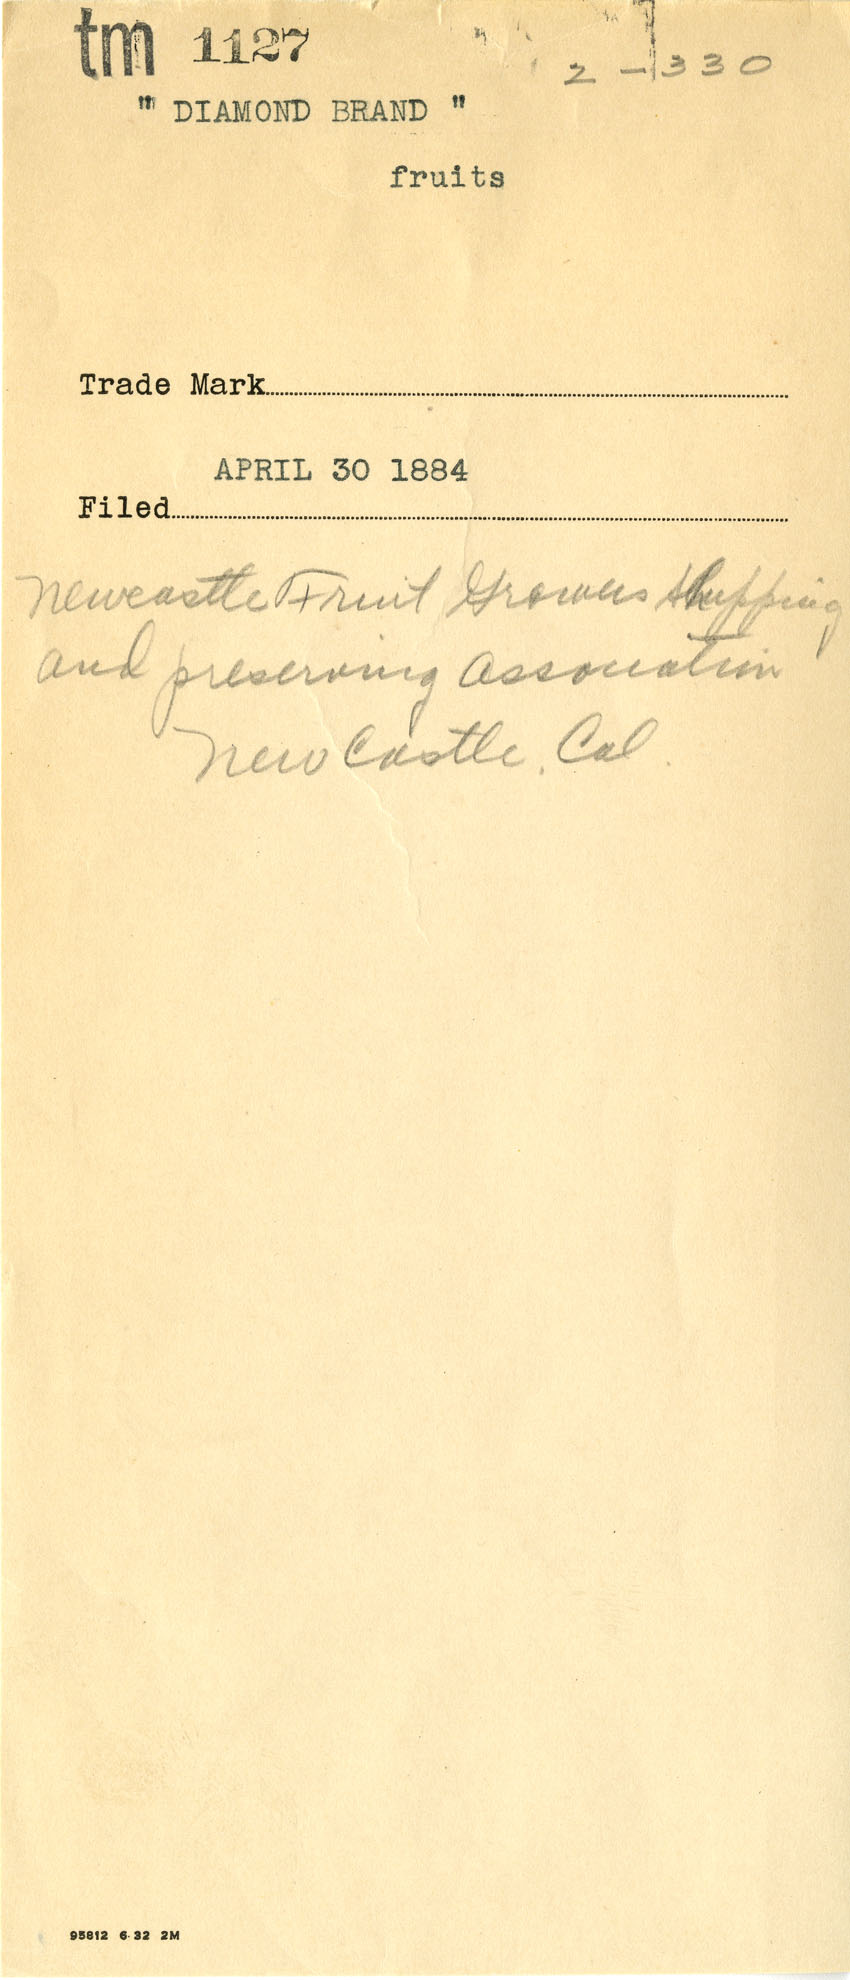 tm 1127
2-330
" DIAMOND BRAND "
fruits
Trade Mark
APRIL 30 1884
Filed
Newcastle Fruit Growers Shipping
and preserving Association
New Castle, Cal.
95812 6-32 2M